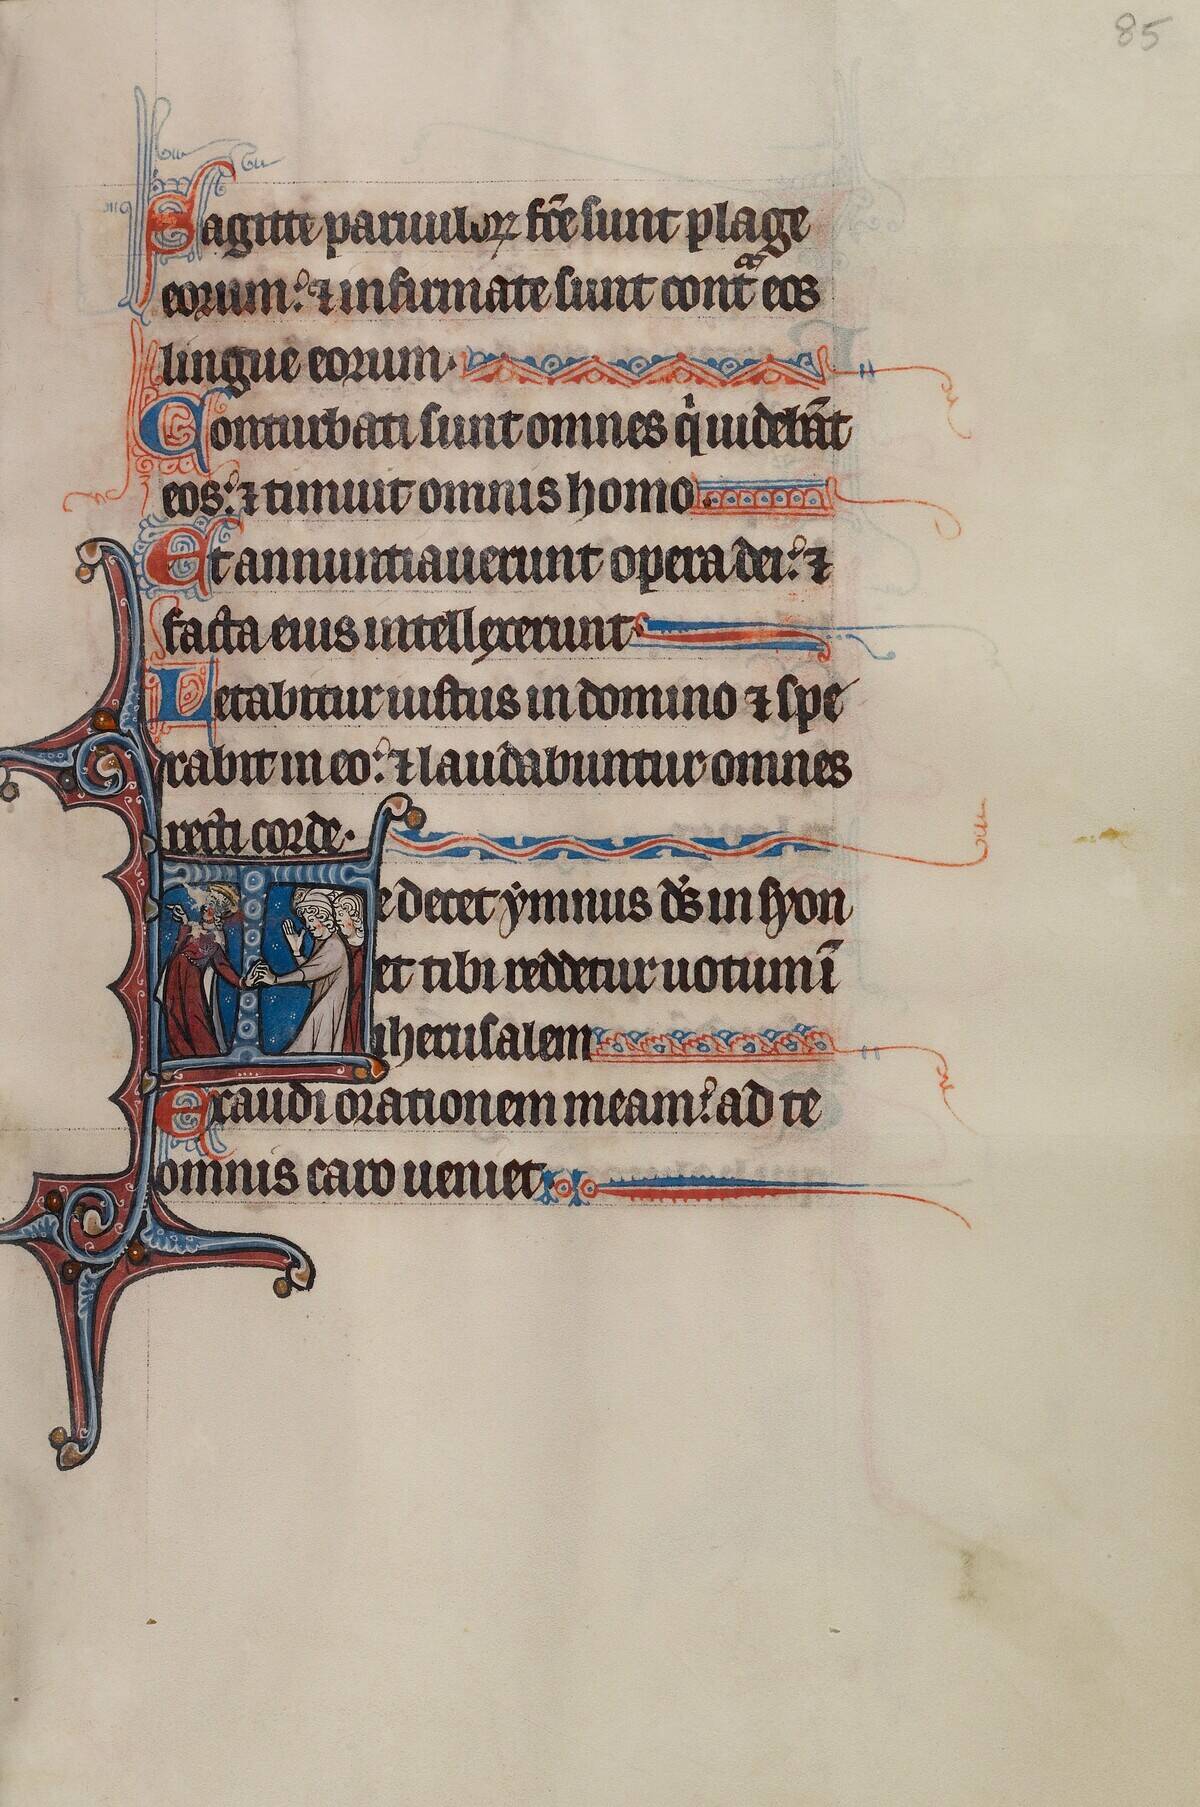 85
Sagitte paruuloꝝ fc̄e sunt plage
eorum: ⁊ infirmate sunt cont̄ eos
lingue eorum.
Conturbati sunt omnes qͥ uidebāt
eos: ⁊ timuit omnis homo.
Et annuntiauerunt opera dei: ⁊
facta eius intellexerunt.
Letabitur iustus in domino ⁊ spe
rabit in eo: ⁊ laudabuntur omnes
recti corde.
Te decet ymnus ds̄ in syon
et tibi reddetur uotum ī
iherusalem
Exaudi orationem meam: ad te
omnis caro ueniet.